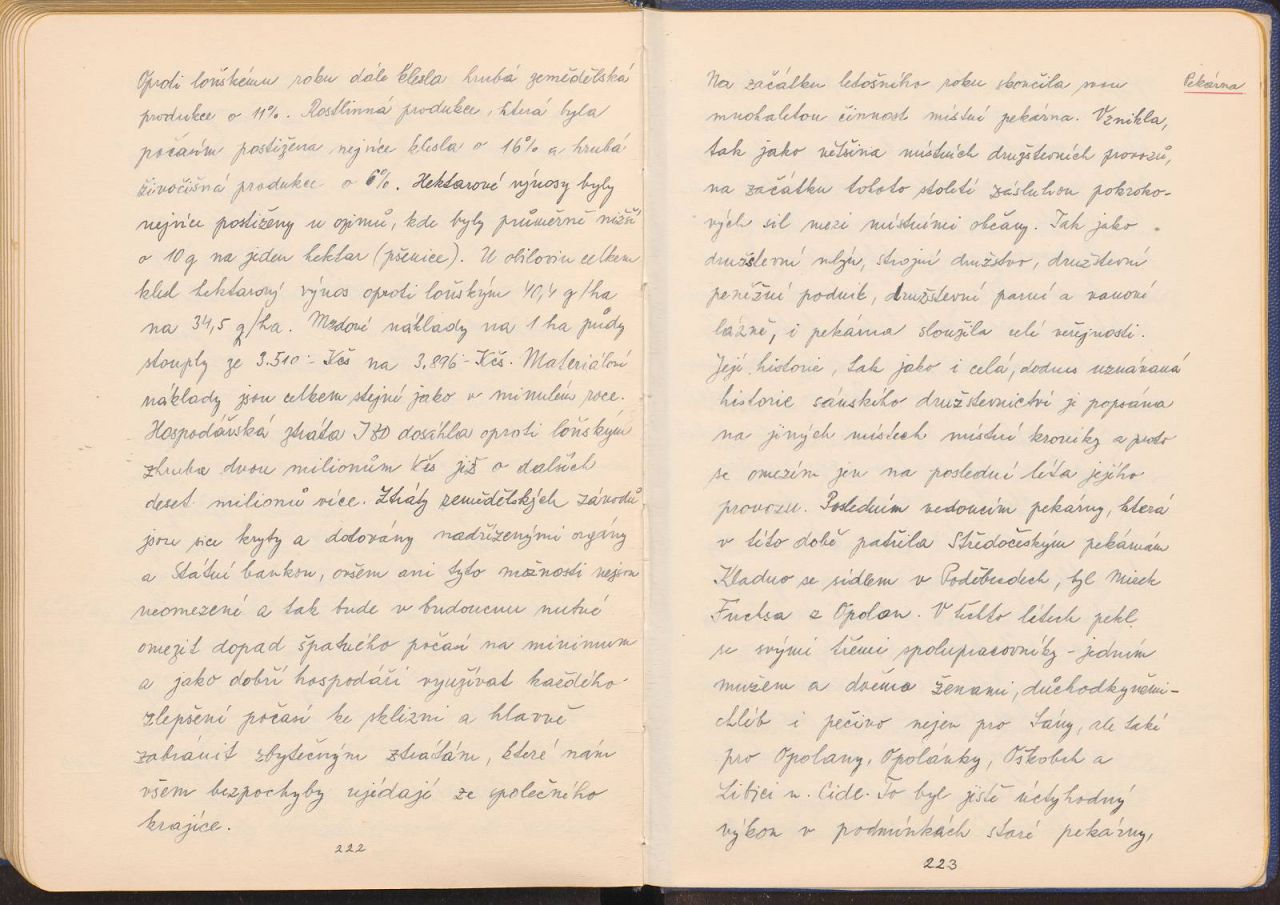 Oproti loňskému roku dále klesla hrubá zemědělská
produkce o 11%. Rostlinná produkce, která byla
počasím postižena nejvíce klesla o 16% a hrubá
živočišná produkce o 6%. Hektarové výnosy byly
nejvíce postiženy u ozimů, kde byly průměrně nižší
o 10 q na jeden hektar (pšenice). U obilovin celkem
klesl hektarový výnos oproti loňským 40,4 q/ha
na 34,5 q/ha. Mzdové náklady na 1 ha půdy
stouply ze 3.510.- Kčs na 3.896.- Kčs. Materiálové
náklady jsou celkem stejné jako v minulém roce.
Hospodářská ztráta JZD dosáhla oproti loňským
zhruba dvou milionům Kčs již o dalších
deset milionů více. Ztráty zemědělských závodů
jsou sice kryty a dotovány nadřízenými orgány
a Státní bankou, ovšem ani tyto možnosti nejsou
neomezené a tak bude v budoucnu nutné
omezit dopad špatného počasí na minimum
a jako dobří hospodáři využívat každého
zlepšení počasí ke sklizni a hlavně
zabránit zbytečným ztrátám, které nám
všem bezpochyby ujídají ze společného
krajíce.
222
Pekárna
Na začátku letošního roku skončila svou
mnohaletou činnost místní pekárna. Vznikla,
tak jako většina místních družstevních provozů,
na začátku tohoto století zásluhou pokroko-
vých sil mezi místními občany. Tak jako
družstevní mlýn, strojní družstvo, družstevní
peněžní podnik, družstevní parní a vanové
lázně, i pekárna sloužila celé veřejnosti.
Její historie, tak jako i celá, dodnes uznávaná
historie sánského družstevnictví je popsána
na jiných místech místní kroniky a proto
se omezím jen na poslední léta jejího
provozu. Posledním vedoucím pekárny, která
v této době patřila Středočeským pekárnám
Kladno se sídlem v Poděbradech, byl Mirek
Fuchsa z Opolan. V těchto létech pekl
se svými třemi spolupracovníky - jedním
mužem a dvěma ženami, důchodkyněmi -
chléb i pečivo nejen pro Sány, ale také
pro Opolany, Opolánky, Oškobrh a
Libici n. Cidl. To byl jistě úctyhodný
výkon v podmínkách staré pekárny,
223